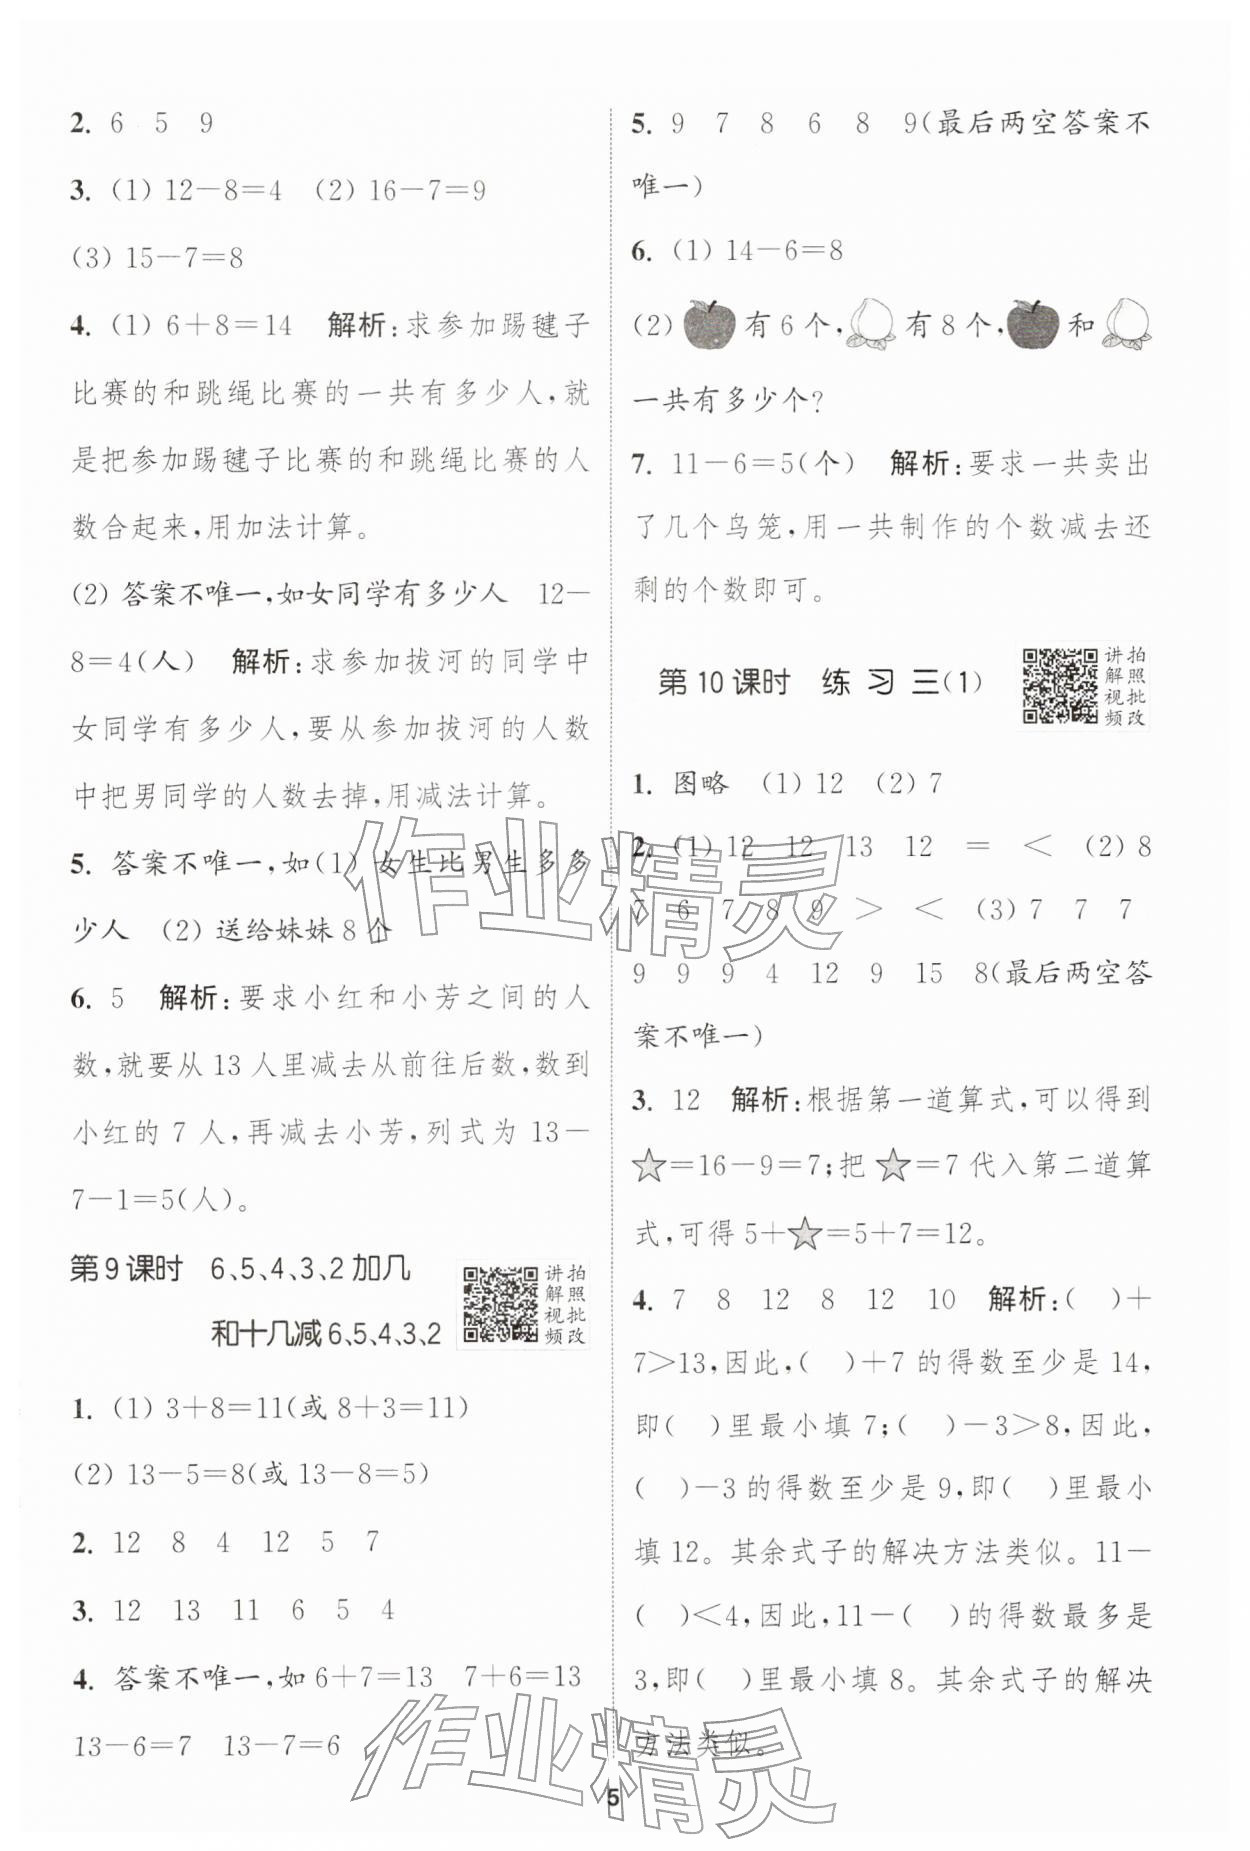 2. 6 5 9
3. (1) 12－8＝4 (2) 16－7＝9
(3) 15－7＝8
4. (1) 6＋8＝14 解析:求参加踢毽子
比赛的和跳绳比赛的一共有多少人,就
是把参加踢毽子比赛的和跳绳比赛的人
数合起来,用加法计算。
(2) 答案不唯一,如女同学有多少人 12－
8＝4(人) 解析:求参加拔河的同学中
女同学有多少人,要从参加拔河的人数
中把男同学的人数去掉,用减法计算。
5. 答案不唯一,如(1) 女生比男生多多
少人 (2) 送给妹妹8个
6. 5 解析:要求小红和小芳之间的人
数,就要从13人里减去从前往后数,数到
小红的7人,再减去小芳,列式为13－
7－1＝5(人)。
第9课时 6、5、4、3、2加几
和十几减6、5、4、3、2
讲拍
解照
视批
频改
1. (1) 3＋8＝11(或8＋3＝11)
(2) 13－5＝8(或13－8＝5)
2. 12 8 4 12 5 7
3. 12 13 11 6 5 4
4. 答案不唯一,如6＋7＝13 7＋6＝13
13－6＝7 13－7＝6
5. 9 7 8 6 8 9(最后两空答案不
唯一)
6. (1) 14－6＝8
(2) 有6个, 有8个, 和
一共有多少个?
7. 11－6＝5(个) 解析:要求一共卖出
了几个鸟笼,用一共制作的个数减去还
剩的个数即可。
第10课时 练习三(1)
讲拍
解照
视批
频改
1. 图略 (1) 12 (2) 7
2. (1) 12 12 13 12 ＝ ＜ (2) 8
7 6 7 8 9 ＞ ＜ (3) 7 7 7
9 9 9 4 12 9 15 8(最后两空答
案不唯一)
3. 12 解析:根据第一道算式,可以得到
☆＝16－9＝7;把☆＝7代入第二道算
式,可得5＋☆＝5＋7＝12。
4. 7 8 12 8 12 10 解析:( )＋
7＞13,因此,( )＋7的得数至少是14,
即( )里最小填7;( )－3＞8,因此,
( )－3的得数至少是9,即( )里最小
填12。其余式子的解决方法类似。11－
( )＜4,因此,11－( )的得数最多是
3,即( )里最小填8。其余式子的解决
方法类似。
作业精灵
作业精灵
5